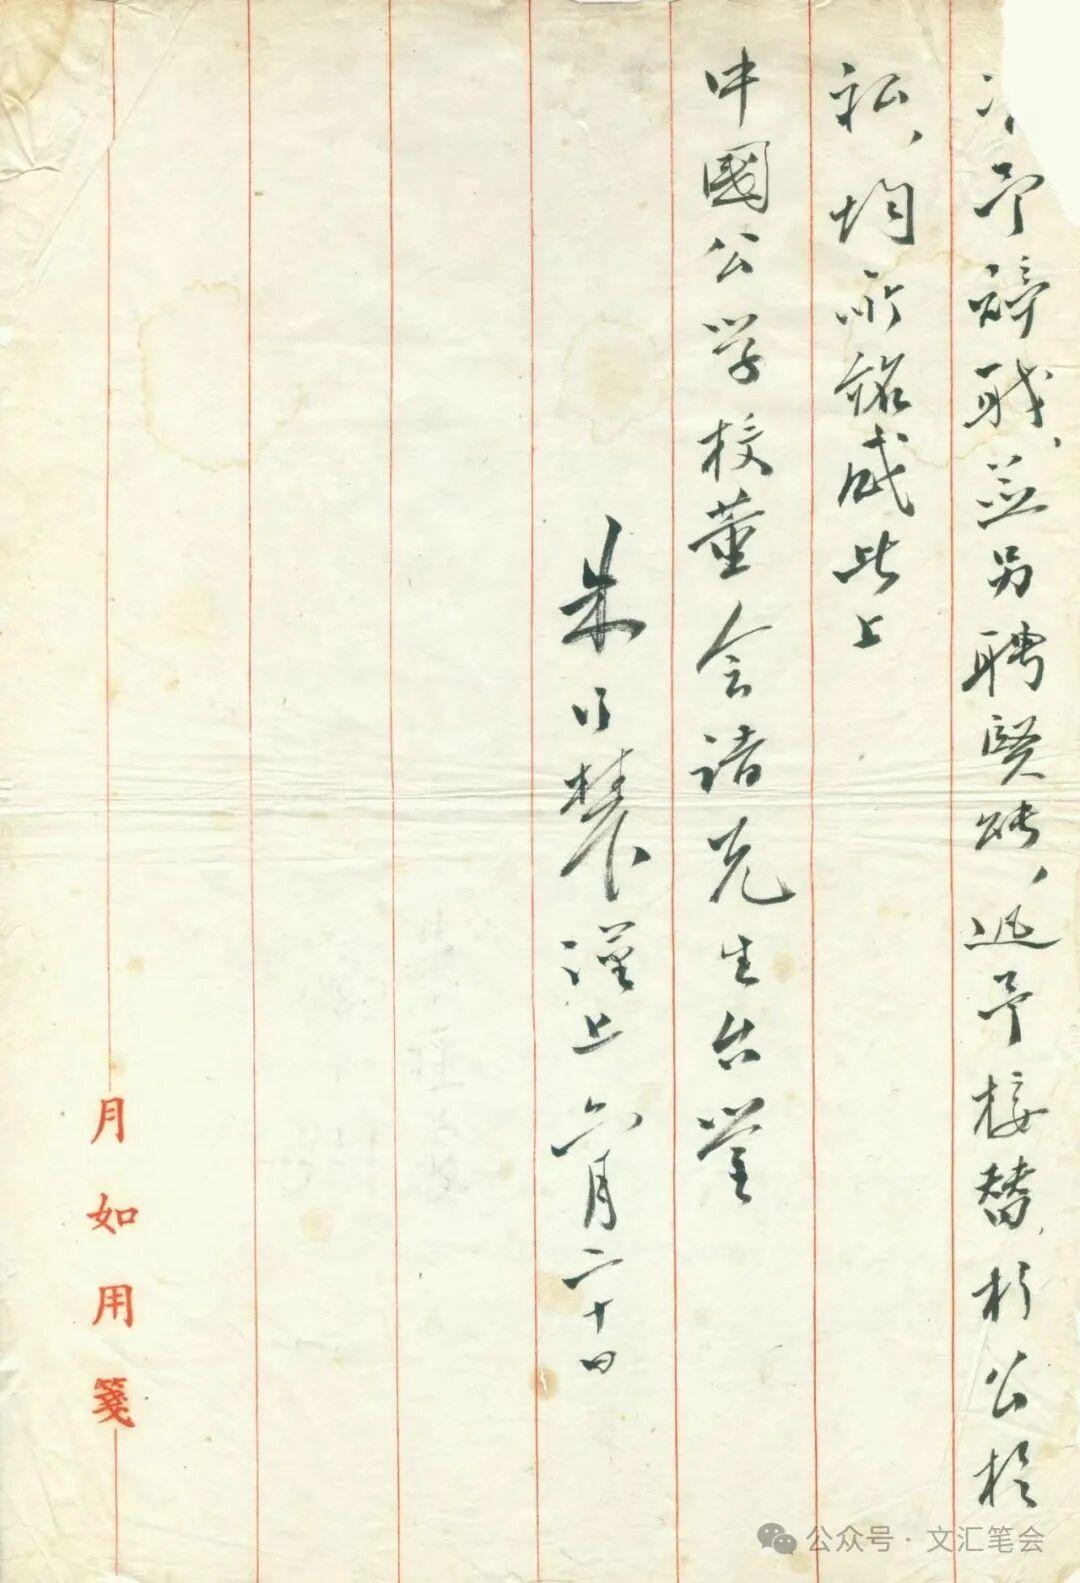 予辭職、並另聘賢能、迅予接替、於公於
私、均所銘感此上
中國公學校董会諸先生台鑒
朱 謹上 六月二十日
月如用箋
公众号·文汇笔会